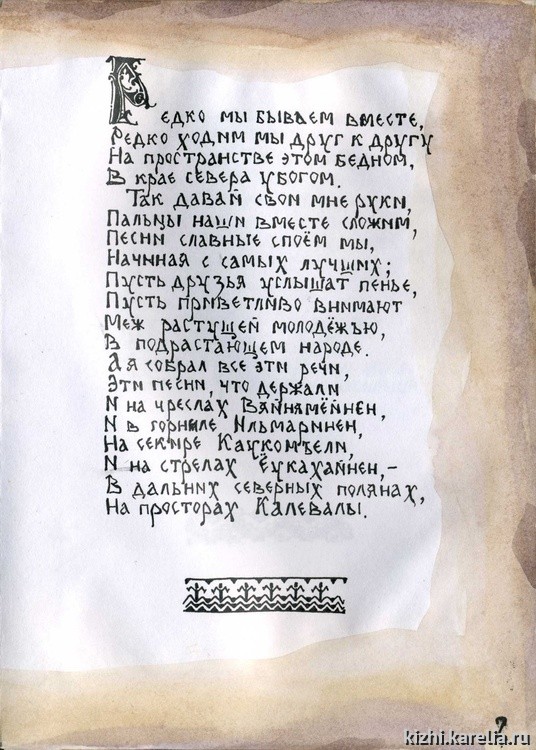 Редко мы бываем вместе,
Редко ходим мы друг к другу
На пространстве этом бедном,
В крае севера убогом.
Так давай свои мне руки,
Пальцы наши вместе сложим,
Песни славные споём мы,
Начиная с самых лучших;
Пусть друзья услышат пенье,
Пусть приветливо внимают
Меж растущей молодёжью,
В подрастающем народе.
А я собрал все эти речи,
Эти песни, что держали
И на чреслах Вяйнямёйнен,
И в горниле Ильмаринен,
На секире Каукомъели,
И на стрелах Ёукахайнен,–
В дальних северных полянах,
На просторах Калевалы.
9
kizhi.karelia.ru